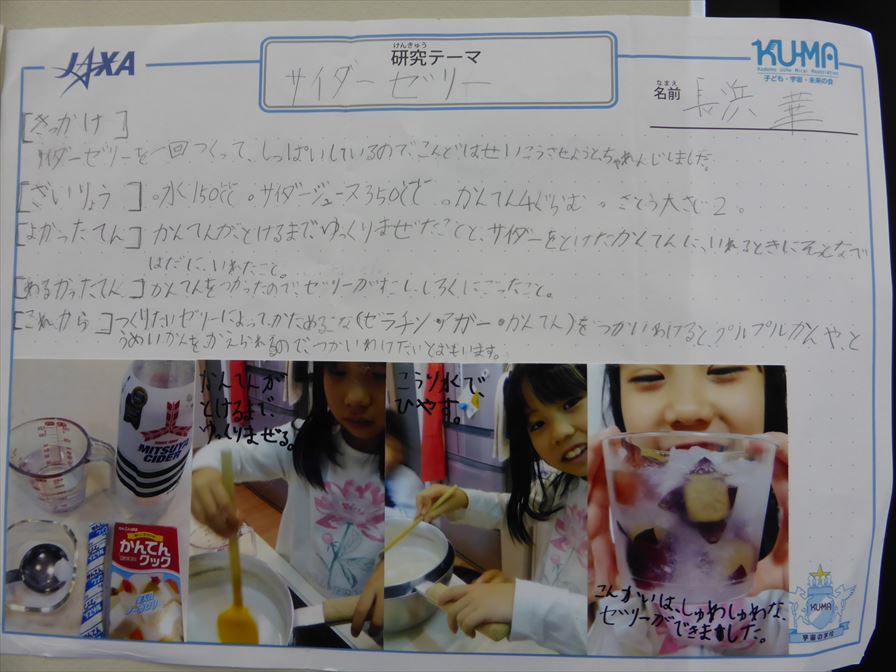 JAXA
けんきゅう
研究テーマ
サイダーゼリー
KU-MA
Kodomo Uchu Mirai Association
子ども・宇宙・未来の会
なまえ
名前 長浜 華
[きっかけ]
サイダーゼリーを一回つくって、しっぱいしているので、こんどはせいこうさせようと、ちゃれんじしました。
[ざいりょう] 。水150㏄ 。サイダージュース350㏄ 。かんてん4ぐらむ 。さとう大さじ2。
[よかったてん] かんてんがとけるまでゆっくりまぜたことと、サイダーをとけたかんてんに、いれるときにそとなべ
はだに、いれたこと。
[わるかったてん] かんてんをつかったので、ゼリーがすこし、しろくにごったこと。
[これから] つくりたいゼリーによって、かためるこな(ゼラチン・アガー・かんてん)をつかいわけると、プルプルかんや、と
うめいかんを、かえられるので、つかいわけたいとおもいます。
MITSUYA
CIDER
かんてん
クック
かんてんが
とけるまで、
ゆっくりまぜる。
こおり水で、
ひやす。
こんかいは、しゅわしゅわな、
ゼリーができました。
KU-MA
宇宙の学校